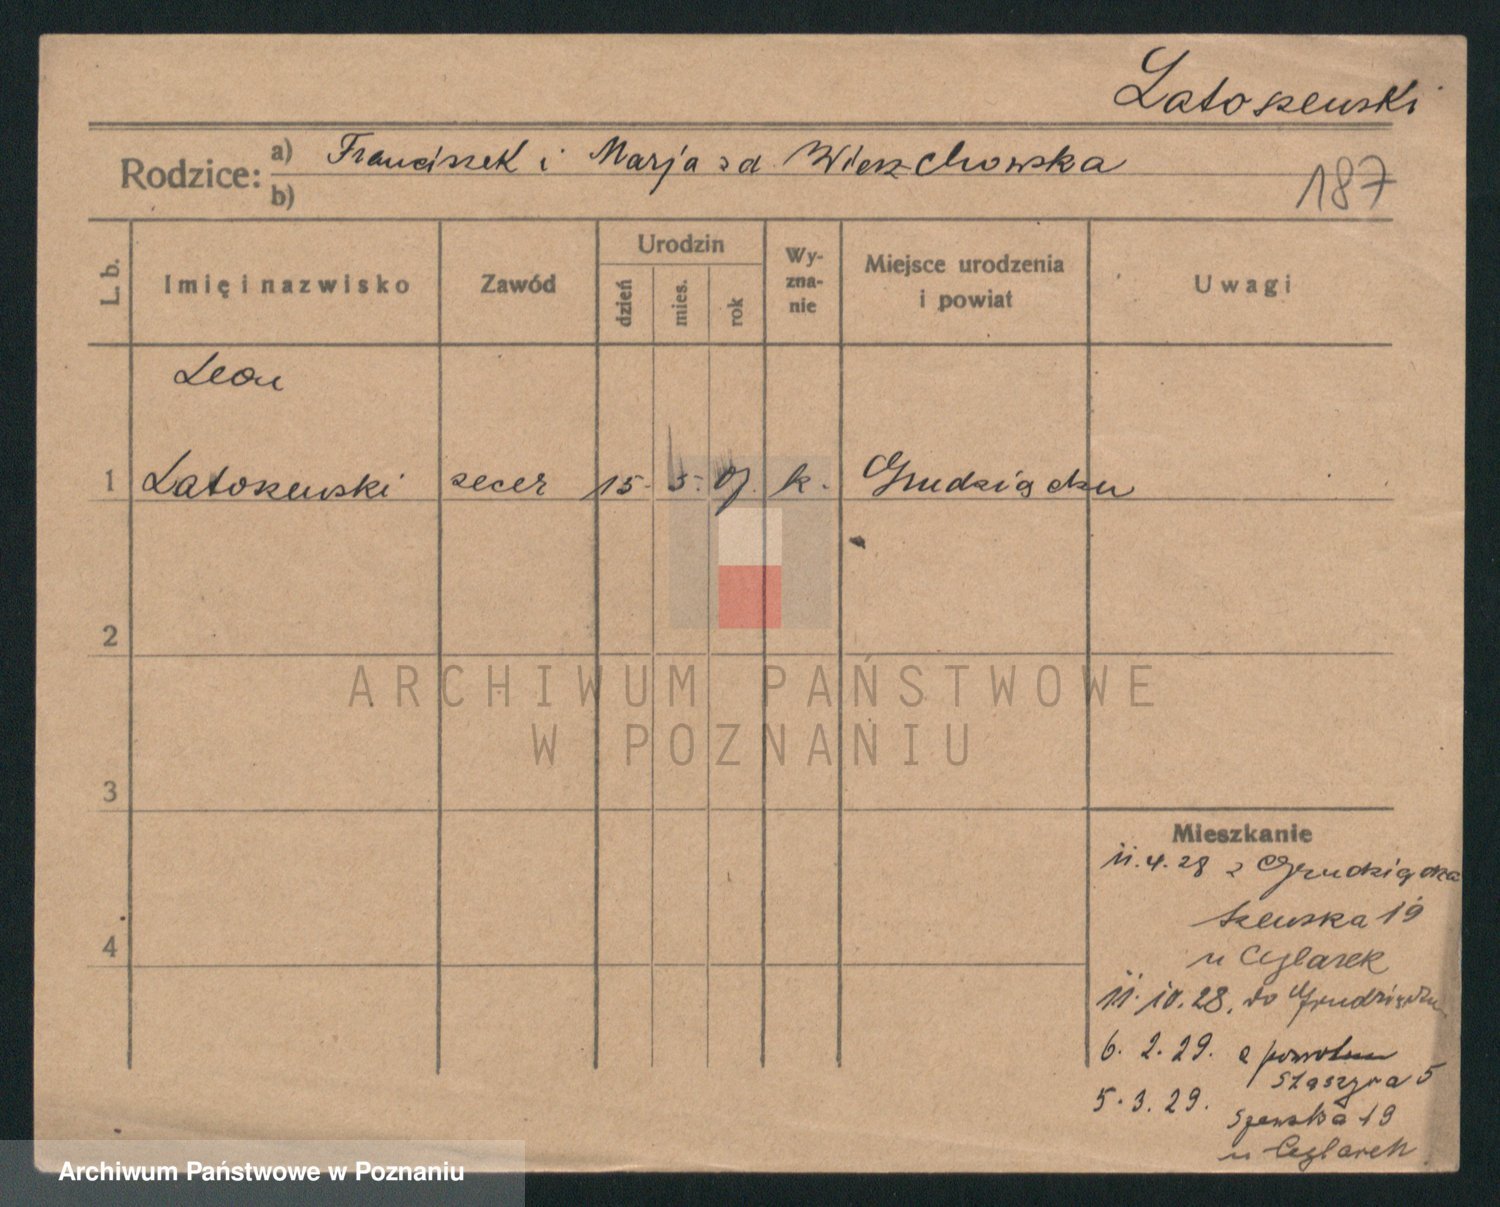 Latoszewski
Rodzice: a) Franciszek i Marja zd. Wierzchowska
b)
187
L. b.
Imię i nazwisko
Zawód
Urodzin
dzień
mies.
rok
Wy-
zna-
nie
Miejsce urodzenia
i powiat
Uwagi
Leon
1 Latoszewski zecer 15. 5. 07. k. Grudziądzu
2
ARCHIWUM PAŃSTWOWE
W POZNANIU
3
4
Mieszkanie
11.4.28 z Grudziądza
Szewska 19
u Cyglarek
11.10.28. do Grudziądzu
6.2.29. z powrotem
Staszyca 5
5.3.29. Szewska 19
u Cyglarek
Archiwum Państwowe w Poznaniu